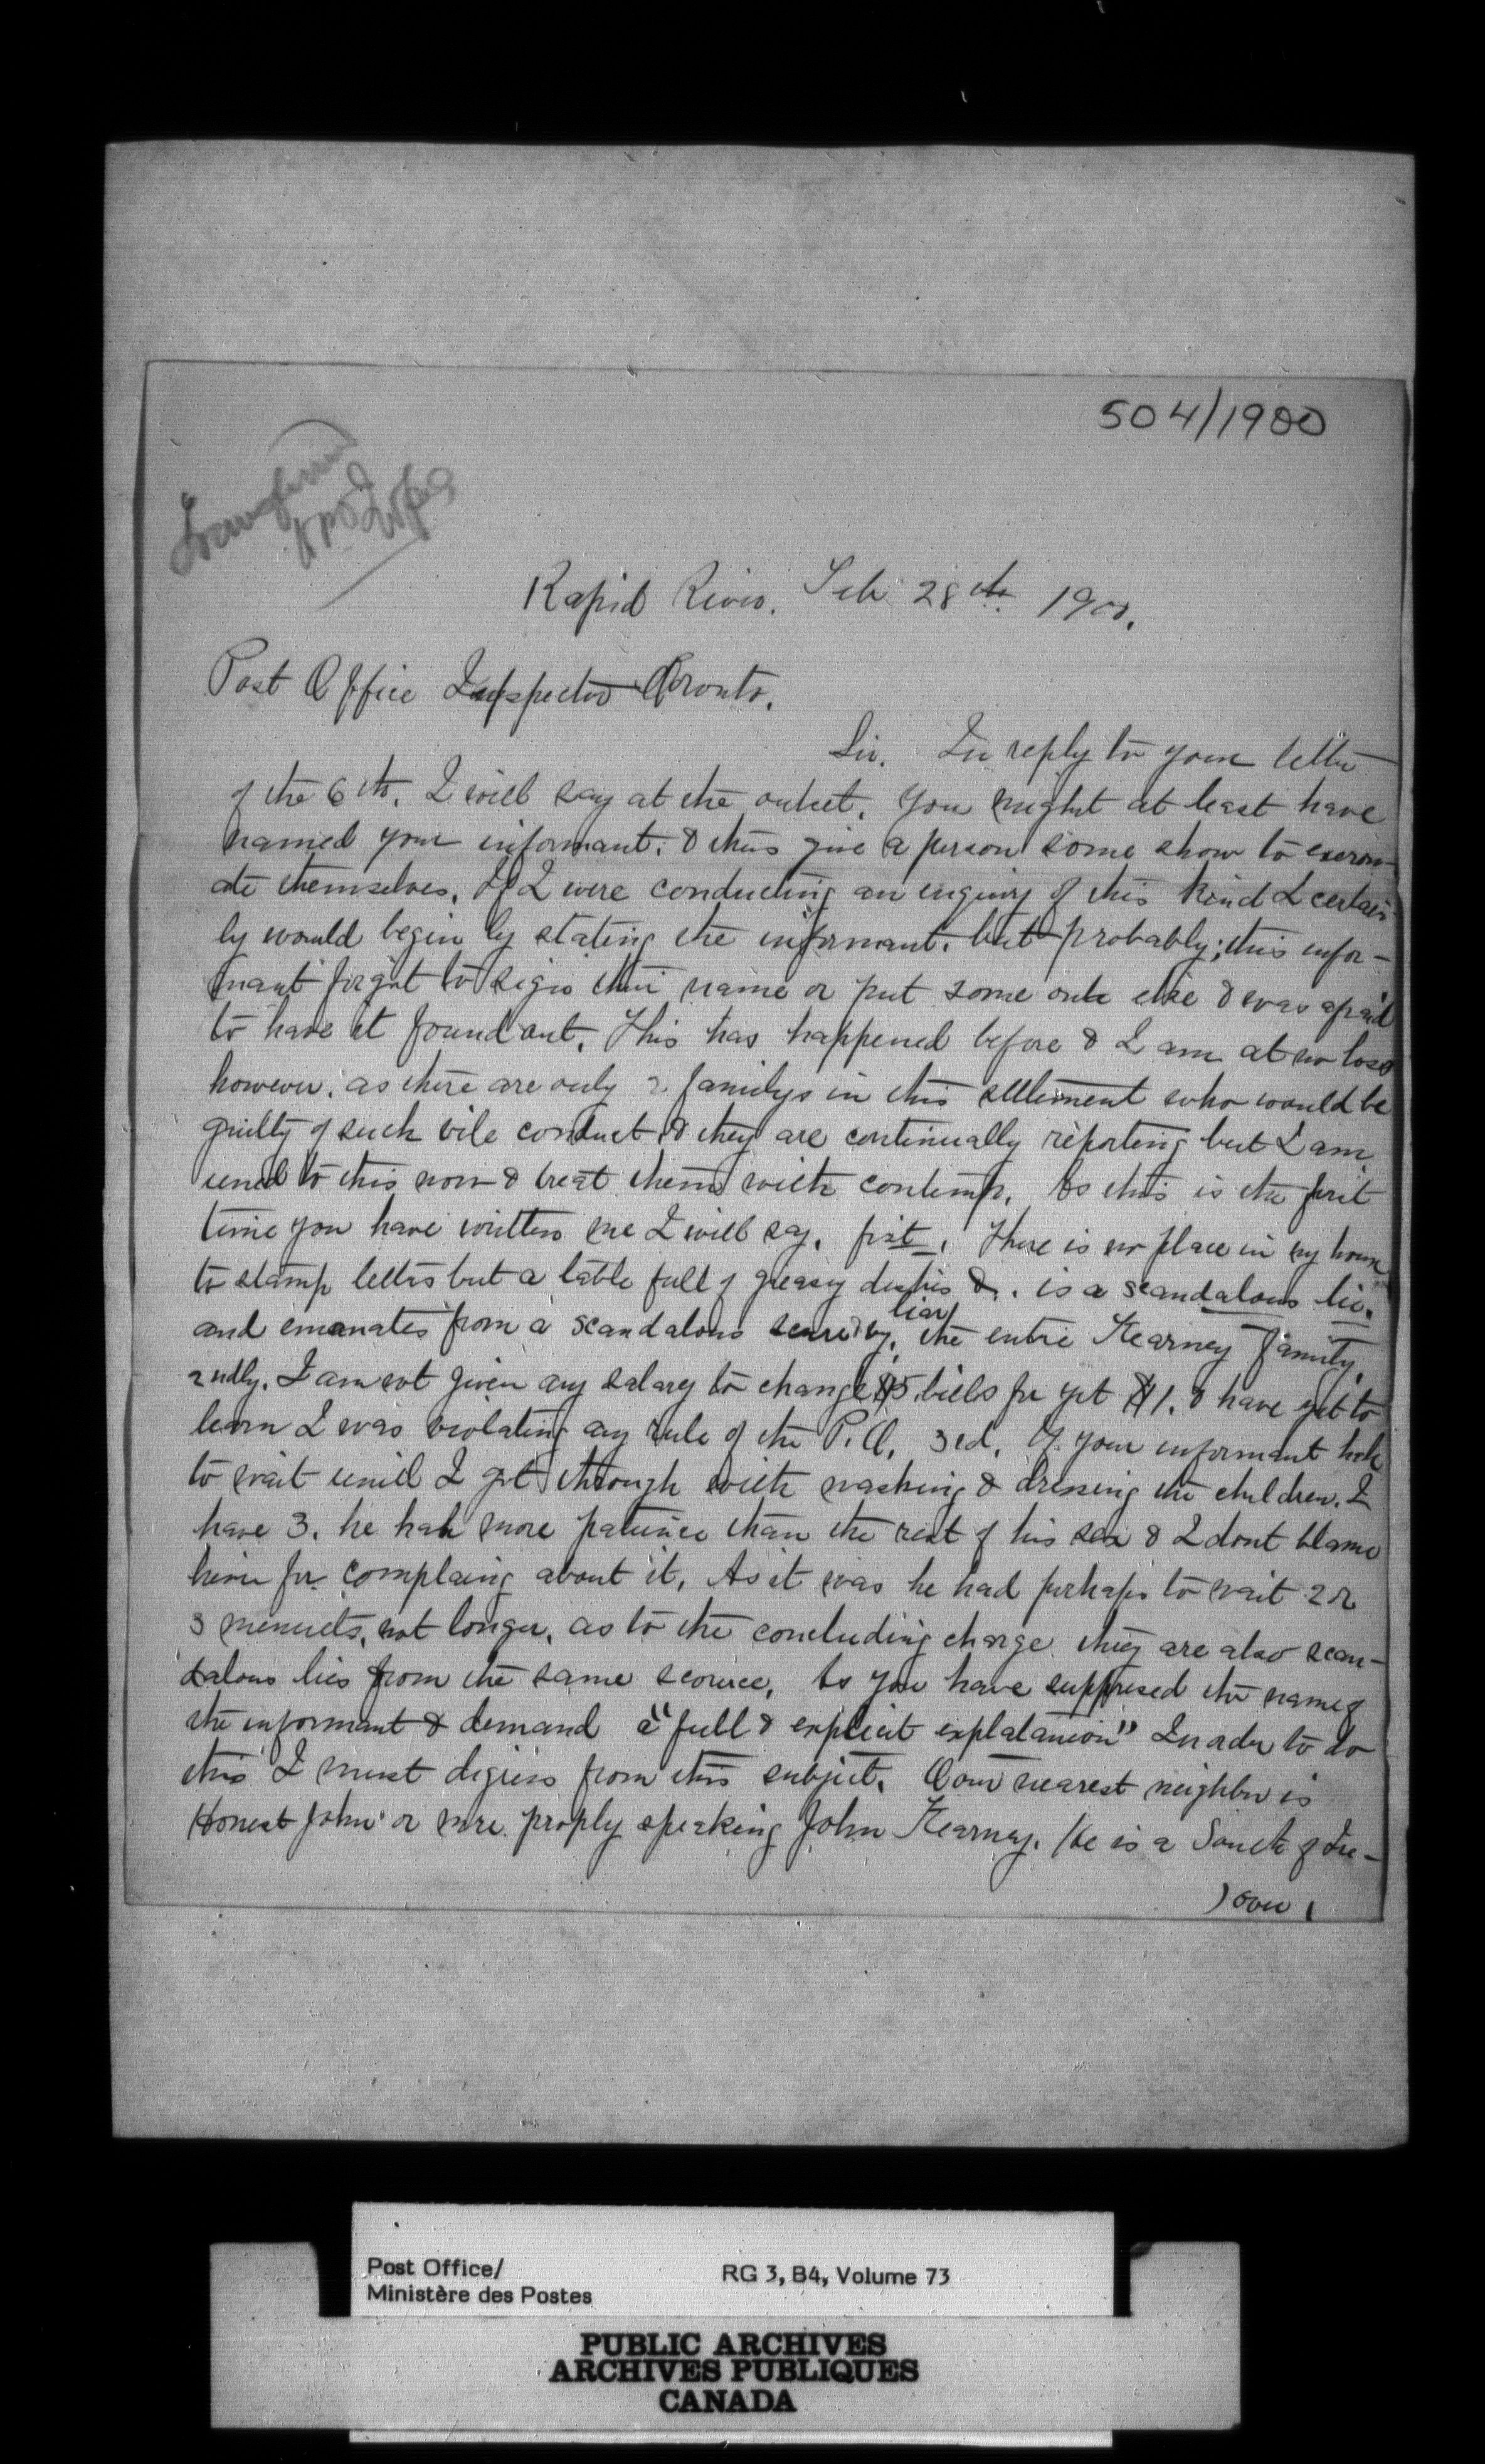 504/1900
Rapid River. Feb 28th 1900.
Post Office Inspector Toronto.
Sir. In reply to your letter
of the 6th. I will say at the outset. You might at least have
named your informant. & thus give a person some show to exeron-
ate themselves. If I were conducting an enquiry of this kind I certain-
ly would begin by stating the informant. but probably; this infor-
mant forgot to sign their name or put some one else & was afraid
to have it found out. This has happened before & I am at no loss
however. as there are only 2 familys in this settlement who would be
guilty of such vile conduct & they are continually reporting but I am
used to this now & treat them with contemp. As this is the first
time you have written me I will say. first. There is no place in my house
to stamp letters but a table full of greasy dishes &. is a scandalous lie.
liar
and emanates from a scandalous . the entire Kearney family.
2ndly. I am not given any salary to change $5 bills for yet $1. & have yet to
learn I was violating any rule of the P.O. 3rd. If your informant had
to wait until I got through with washing & dressing the children. I
have 3. he had more patience than the rest of his sex & I dont blame
him for complaing about it. As it was he had perhaps to wait 2 or
3 menuets, not longer. as to the concluding charge they are also scan-
dalous lies from the same scource. As you have suppresed the name of
the informant & demand a "full & explicit explalanion" In order to do
this I must digress from this subject. Our nearest neighbor is
Honest John or more proply speaking John Kearney. He is a South of Ire-
) over (
Post Office/
Ministère des Postes
RG 3, B4, Volume 73
PUBLIC ARCHIVES
ARCHIVES PUBLIQUES
CANADA